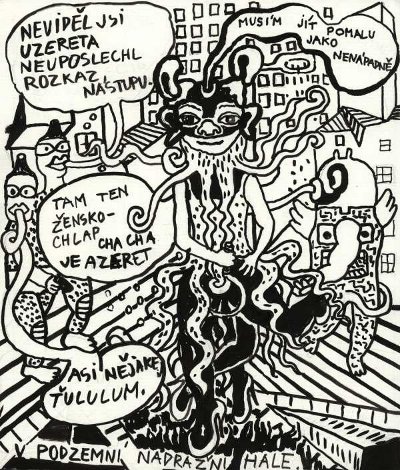 NEVIDĚL JSI
UZERETA
NEUPOSLECHL
ROZKAZ
NÁSTUPU.
MUSÍM JÍT POMALU
JAKO
NENÁPADNĚ
TAM TEN
ŽENSKO-
CHLAP
CHA CHA
JE AZERET
ASI NĚJAKÉ
ŤULULUM.
V PODZEMNÍ NÁDRAŽNÍ HALE.